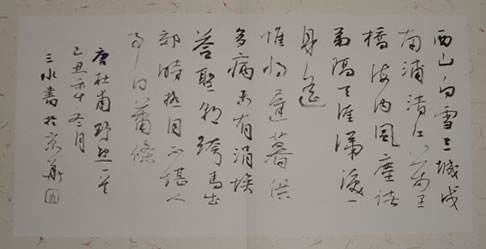 西山白雪三城戍
南浦清江万里
橋海内風塵诸
弟隔天涯涕淚一
身遥
惟将遲暮供
多病未有涓埃
答聖朝跨馬出
郊時极目不堪人
事日蕭條
唐杜甫野望一首
己丑年冬月
三水書於京華